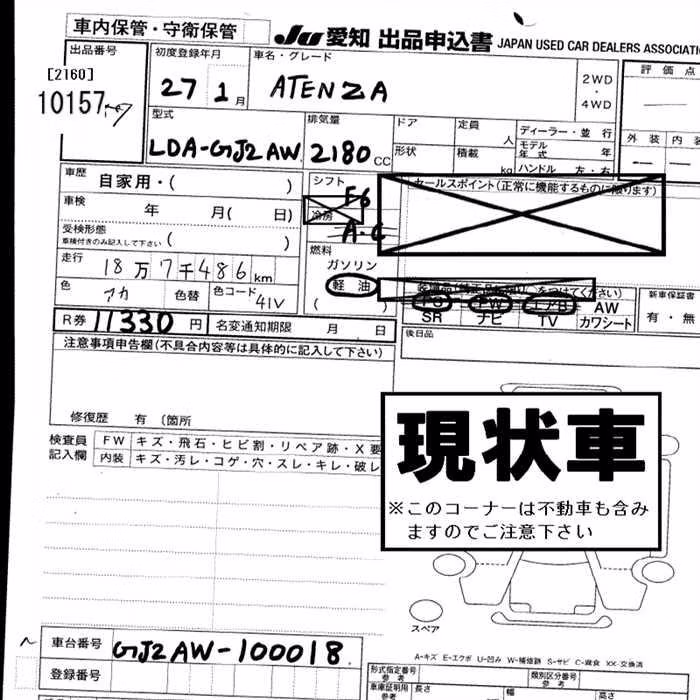 車内保管・守衛保管
JU 愛知 出品申込書 JAPAN USED CAR DEALERS ASSOCIATI
出品番号
[2160]
10157
初度登録年月
27 1月
車名・グレード
ATENZA
2WD
・
4WD
評価点
型式
LDA-GJ2AW
排気量
2180 CC
ドア
定員
人
形状
積載
kg
ディーラー・並行
モデル年式
年
ハンドル 左・右
外装 内装
車歴
自家用・( )
車検
年 月( 日)
受検形態
車検付きのみ記入して下さい ( )
走行
18万7千486km
色
アカ
色替
色コード
41V
シフト
F6
冷房
A-C
燃料
ガソリン
軽油
( )
セールスポイント(正常に機能するものに限ります)
をつけてください)
PS PW エアB AW
SR ナビ TV カワシート
新車保証書
有・無
R券 11330円
名変通知期限 月 日
後日品
注意事項申告欄(不具合内容等は具体的に記入して下さい)
修復歴 有 (箇所
検査員記入欄
FW キズ・飛石・ヒビ割・リペア跡・X要
内装 キズ・汚レ・コゲ・穴・スレ・キレ・破レ
現状車
※このコーナーは不動車も含み
ますのでご注意下さい
スペア
A-キズ E-エクボ U-凹み W-補修跡 S-サビ C-腐食 XX-交換済
車台番号 GJ2AW-100018
登録番号
形式指定番号
参考
類別区分番号
参考
車庫証明用
参考
長さ
幅
高さ